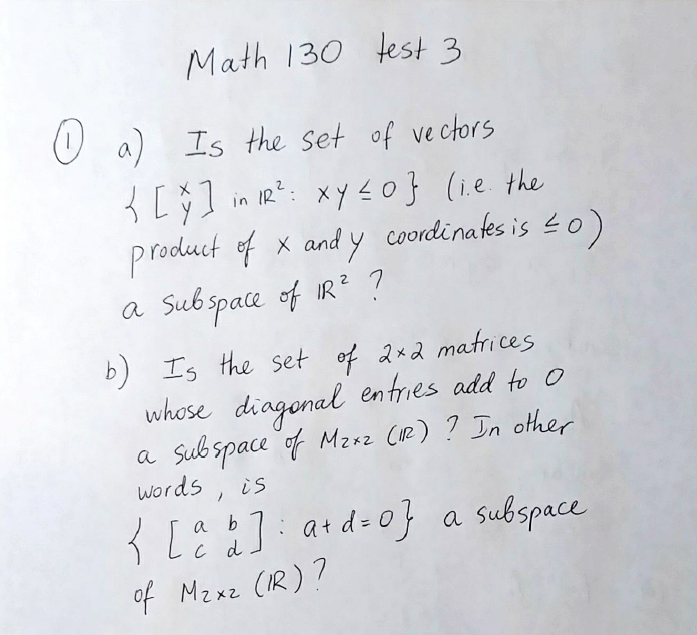 Math 130 test 3
① a) Is the set of vectors
{ [x y] in ℝ²: xy ≤ 0 } (i.e. the
product of x and y coordinates is ≤ 0)
a subspace of ℝ² ?
b) Is the set of 2×2 matrices
whose diagonal entries add to 0
a subspace of M2×2 (ℝ) ? In other
words, is
{ [a b c d] : a + d = 0 } a subspace
of M2×2 (ℝ) ?